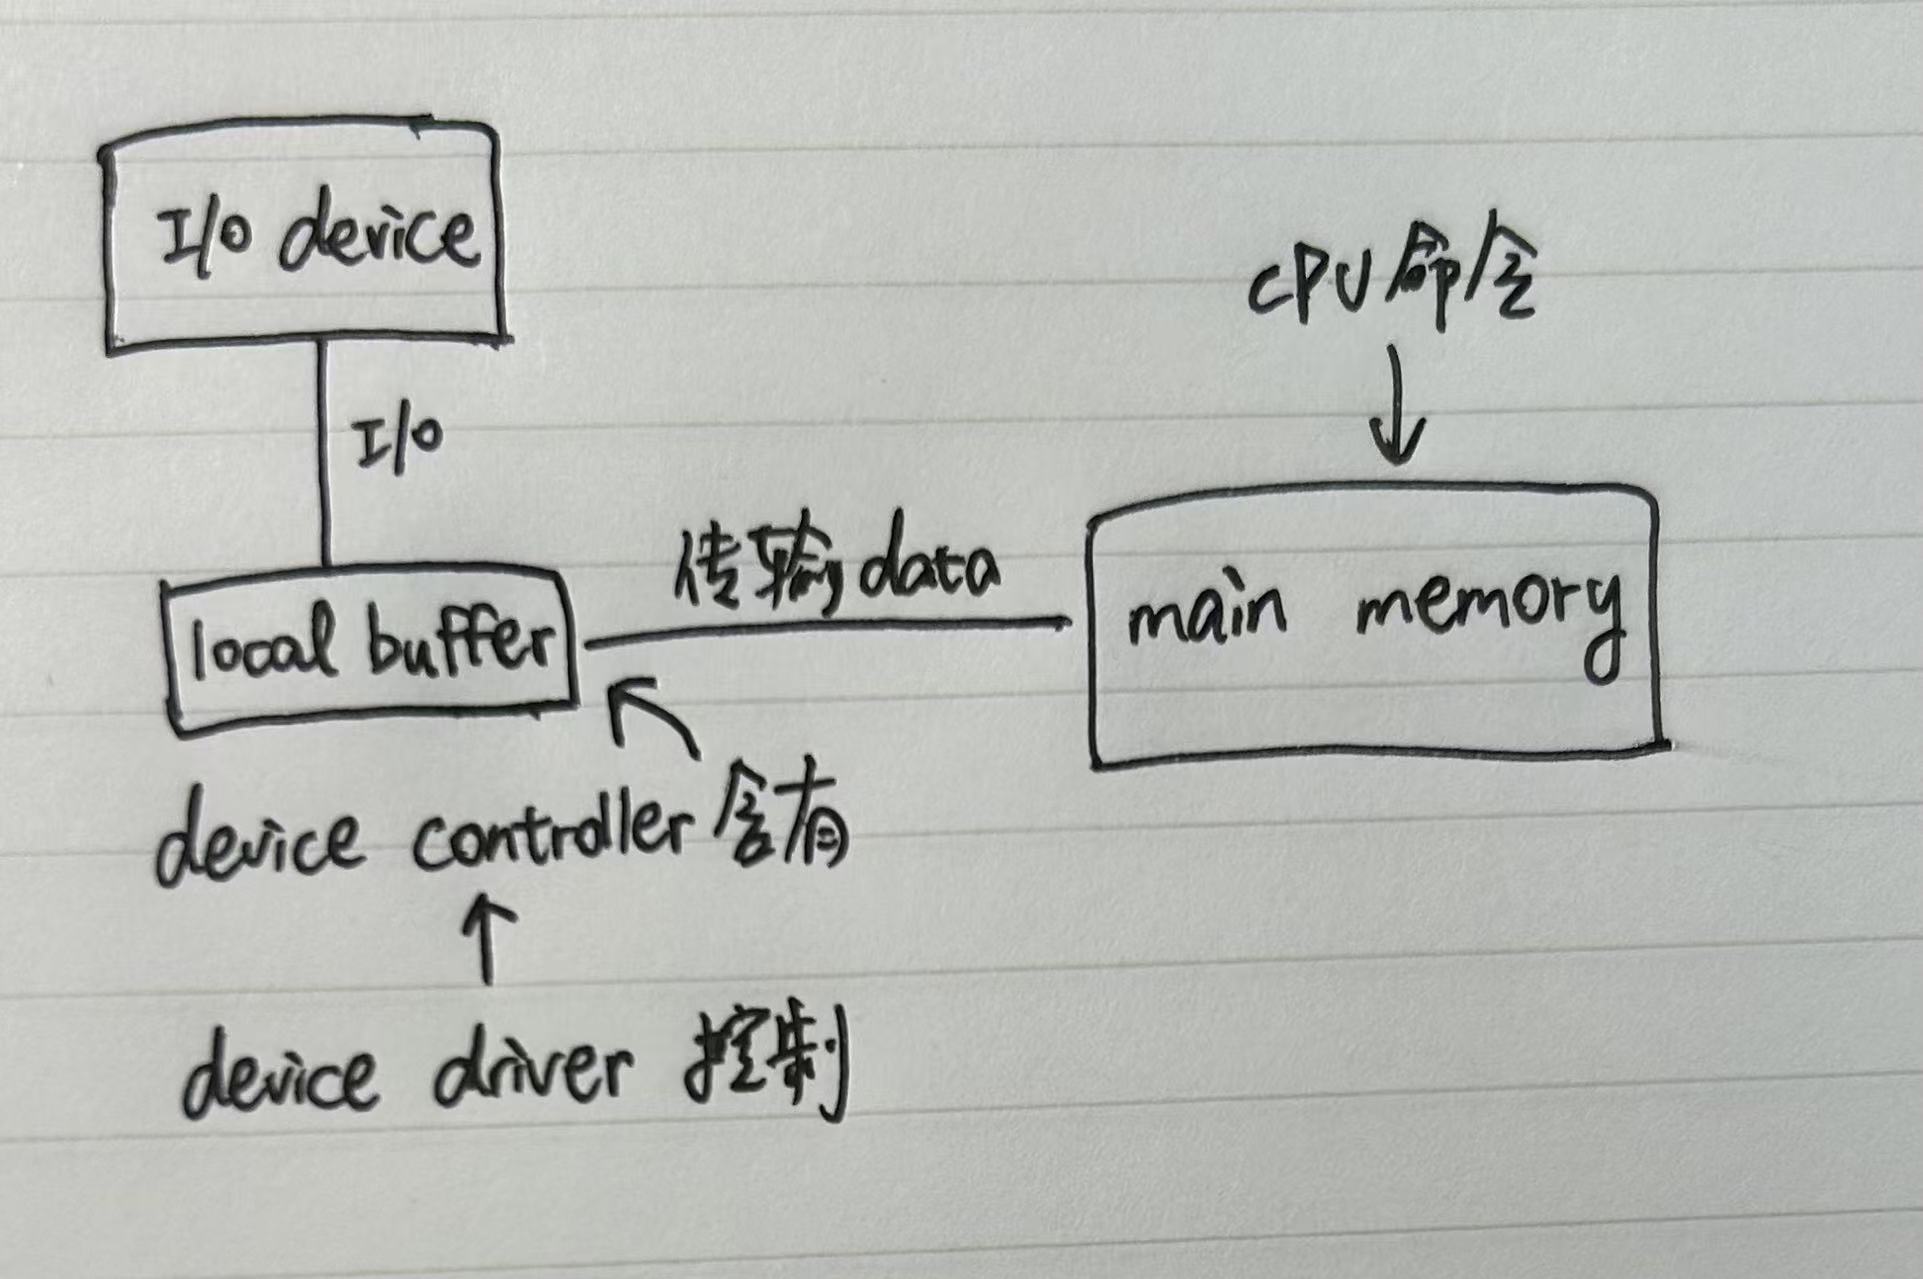 I/O device
CPU命令
I/O
传输data
local buffer
main memory
device controller含有
device driver 控制